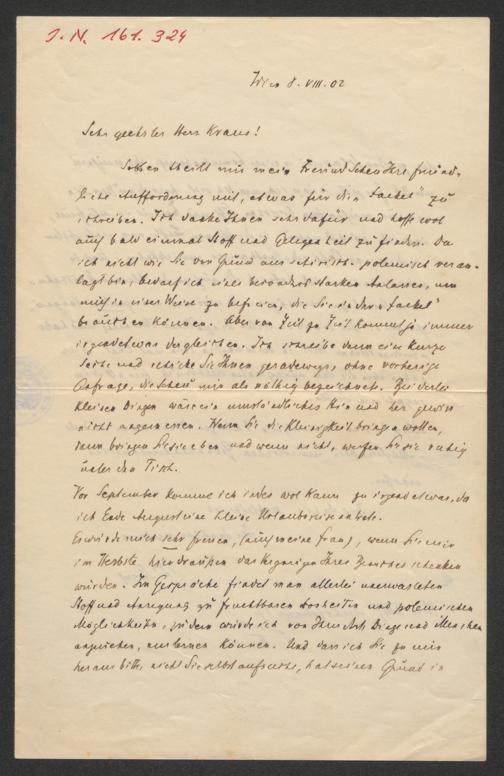 J. N. 161.324
Wien 8. VIII. 02
Sehr geehrter Herr Kraus!
Soeben theilt mir mein Freund Scheu Ihre freund-
liche Aufforderung mit, etwas für die „Fackel" zu
schreiben. Ich danke Ihnen sehr dafür und hoffe wol
auch bald einmal Stoff und Gelegenheit zu finden. Da
ich nicht wie Sie von Grund aus satirisch-polemisch veran-
lagt bin, bedarf ich eines besonders starken Anlasses, um
mich in einer Weise zu befreien, die Sie in der „Fackel"
brauchen können. Aber von Zeit zu Zeit kommt ja immer
irgendetwas dergleichen. Ich schreibe dann eine kurze
Seite und schicke sie Ihnen geradewegs, ohne vorherige
Anfrage, die Scheu mir als nöthig bezeichnet. Bei derlei
kleinen Dingen wäre ein umständliches Hin und her gewiss
nicht angemessen. Wenn Sie die Kleinigkeit bringen wollen,
dann bringen Sie sie eben und wenn nicht, werfen Sie sie ruhig
unter den Tisch.
Vor September komme ich indes wol kaum zu irgendetwas, da
ich Ende August eine kleine Urlaubsreise antrete.
Es würde mich sehr freuen, (auch meine Frau), wenn Sie mir
im Herbste hier draußen das Vergnügen Ihres Besuches schenken
würden. Im Gespräche findet man allerlei unerwarteten
Stoff und Anregung zu fruchtbaren Bosheiten und polemischen
Möglichkeiten, zudem würde ich von Ihrer Art, Dinge und Menschen
anzusehen, nur lernen können. Und dass ich Sie zu mir
heraus bitte, nicht Sie selbst aufsuche, hat seinen Grund in